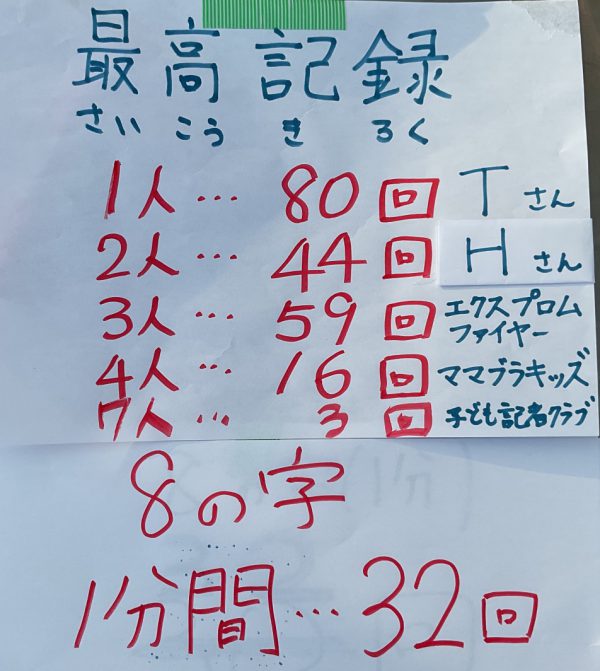 最高記録
さいこうきろく
1人… 80回 Tさん
2人… 44回 Hさん
3人… 59回 エクスプロム
ファイヤー
4人… 16回 ママブラキッズ
7人… 3回 子ども記者クラブ
8の字
1分間…32回